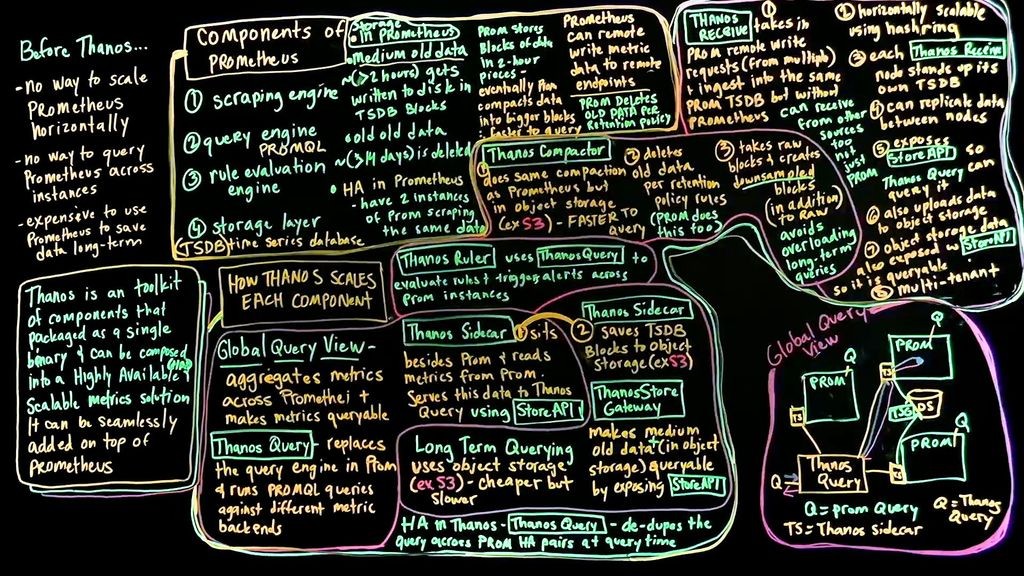 Before Thanos...
- no way to scale
Prometheus
horizontally
- no way to query
Prometheus across
instances
- expensive to use
Prometheus to save
data long-term
Components of
Prometheus
① scraping engine
② query engine
PROMQL
③ rule evaluation
engine
④ storage layer
(TSDB) time series database
Storage
in Prometheus
• medium old data
~(>2 hours) gets
written to disk in
TSDB Blocks
• old old data
~(>14 days) is deleted
• HA in Prometheus
- have 2 instances
of Prom scraping
the same data
PROM STORES
Blocks of data
In 2-hour
pieces -
eventually Prom
compacts data
into bigger blocks
: faster to query
Prometheus
can remote
write metric
data to remote
endpoints
PROM DELETES
OLD DATA PER
Retention policy
THANOS
RECEIVE
① takes in
PROM remote write
requests (from multiple)
+ ingest into the same
PROM TSDB but without
PROMETHEUS
can receive
from other
sources
too
not
just
PROM
② horizontally scalable
using hashring
③ each Thanos Receive
node stands up its
own TSDB
④ can replicate data
between nodes
⑤ exposes
StoreAPI so
Thanos Query can
query it
⑥ also uploads data
to object storage
⑦ object storage data
also exposed w StoreAPI
so it is queryable
⑧ multi-tenant
Thanos Compactor
① does same compaction
as Prometheus but
in object storage
(ex S3) - FASTER TO
QUERY
② deletes
old data
per retention
policy rules
(PROM does
this too)
③ takes raw
blocks + creates
downsampled
blocks
(in addition
to raw)
avoids
overloading
long-term
queries
Thanos is an toolkit
of components that
packaged as a single
binary + can be composed
into a Highly Available (HA) +
Scalable metrics solution
It can be seamlessly
added on top of
Prometheus
HOW THANOS SCALES
EACH COMPONENT
Thanos Ruler uses Thanos Query to
evaluate rules + trigger alerts across
Prom instances
Global Query View -
aggregates metrics
across Promethei +
makes metrics queryable
Thanos Query - replaces
the query engine in Prom
+ runs PROMQL queries
against different metric
backends
Thanos Sidecar ① sits
besides Prom + reads
metrics from Prom.
Serves this data to Thanos
Query using StoreAPI
② Thanos Sidecar
saves TSDB
Blocks to Object
storage (ex S3)
Thanos Store
Gateway
makes medium
+
old data (in object
storage) queryable
by exposing StoreAPI
Long Term Querying
uses object storage
(ex S3) - cheaper but
slower
HA in Thanos - Thanos Query - de-dupes the
query across PROM HA pairs at query time
Global Query
View
Q
PROM
Q
PROM
TS
TS
TSG
OS
Q
PROM
TS
Thanos
Query
Q
Q = prom Query
TS = Thanos Sidecar
Q = Thanos
Query